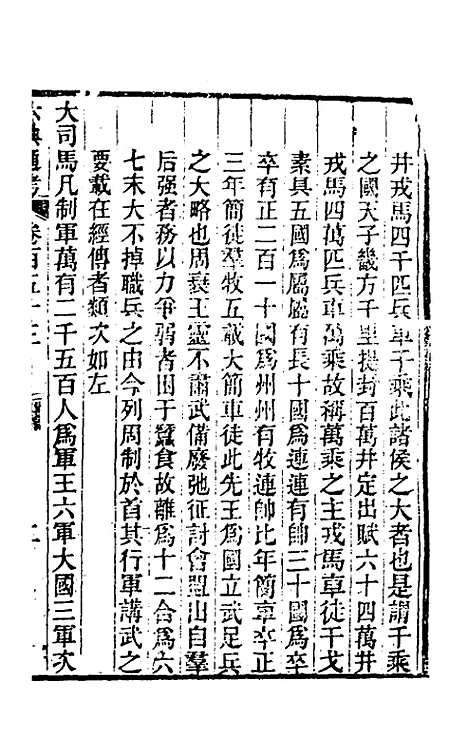 井戎馬四千匹兵車千乘此諸侯之大者也是謂千乘
之國天子畿方千里提封百萬井定出賦六十四萬井
戎馬四萬匹兵車萬乘故稱萬乘之主戎馬車徒干戈
素具五國為屬屬有長十國為連連有帥三十國為卒
卒有正二百一十國為州州有牧連帥比年簡車卒正
三年簡徒羣牧五載大簡車徒此先王為國立武足兵
之大略也周衰王靈不肅武備廢弛征討會盟出自羣
后强者務以力爭弱者困于蠶食故離為十二合為六
七末大不掉職兵之由今列周制於首其行軍講武之
要載在經傳者類次如左
大司馬凡制軍萬有二千五百人為軍王六軍大國三軍次
六典通考 卷百五十三